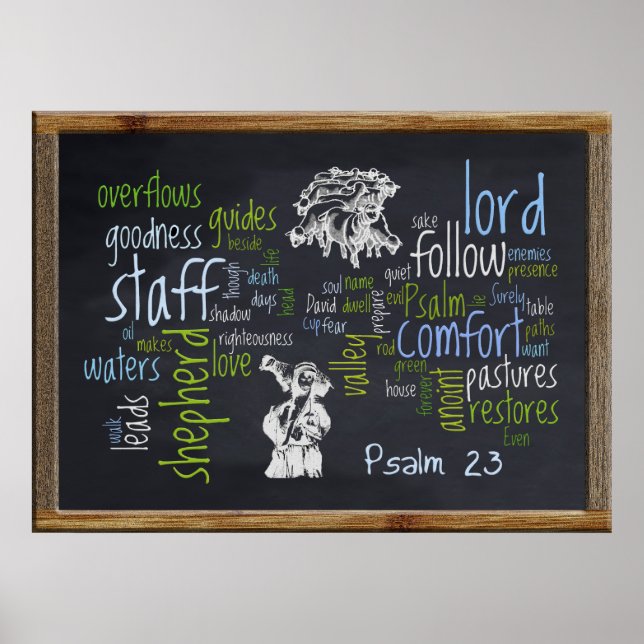 overflows
goodness
guides
beside
life
staff
though
death
days
head
shadow
oil
makes
righteousness
waters
shepherd
love
walk
leads
lord
sake
follow
enemies
presence
quiet
soul
name
David
dwell
cup
fear
prepare
evil
Psalm
lie
Surely
table
comfort
paths
want
valley
rod
green
house
forever
anoint
pastures
restores
Even
Psalm 23